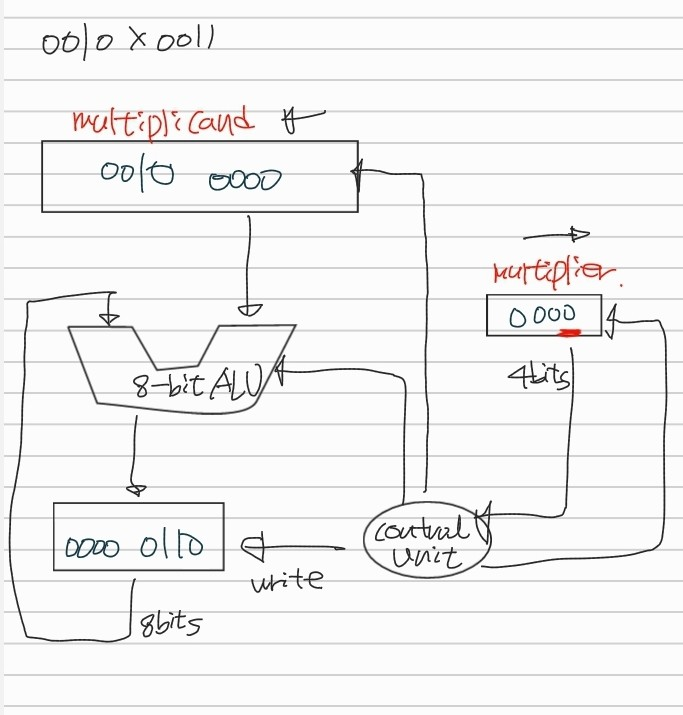 0010 × 0011
multiplicand ←
0010 0000
→
multiplier.
0000
8-bit ALU
4bits
0000 0110
control
unit
write
8bits